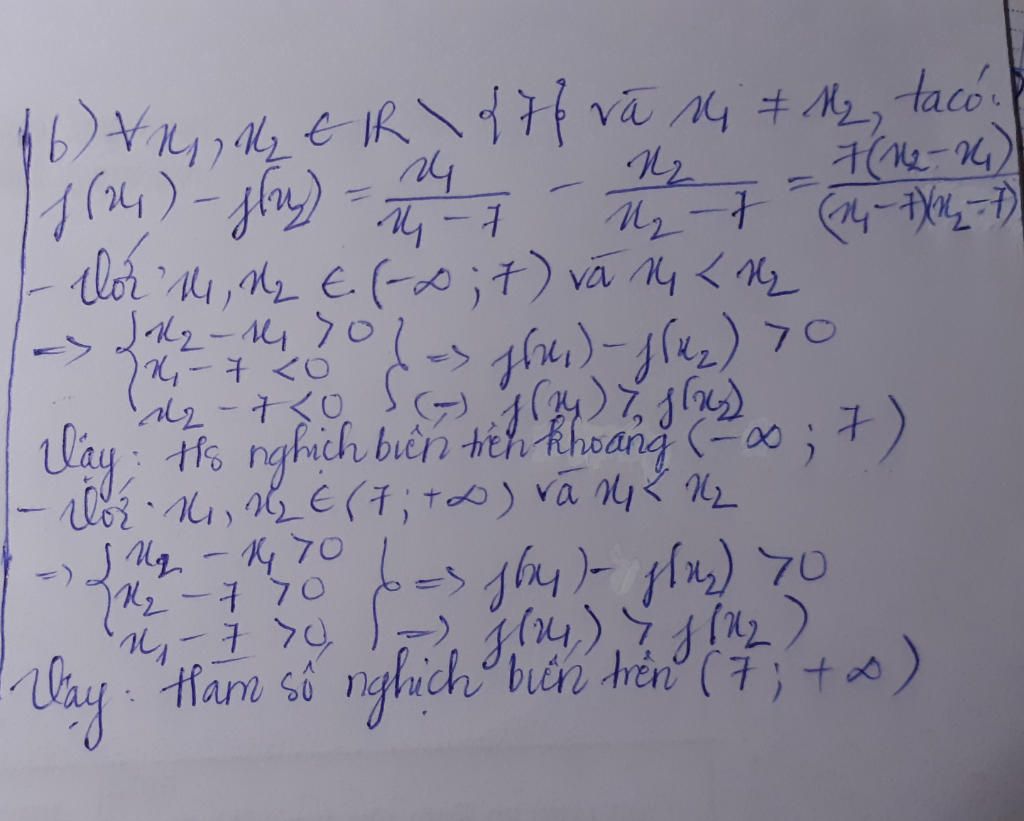 b) ∀x₁, x₂ ∈ ℝ \ {7} và x₁ ≠ x₂, ta có:
f(x₁) - f(x₂) = x₁/(x₁ - 7) - x₂/(x₂ - 7) = 7(x₂ - x₁)/((x₁ - 7)(x₂ - 7))
- Với x₁, x₂ ∈ (-∞; 7) và x₁ < x₂
=> { x₂ - x₁ > 0
x₁ - 7 < 0 } => f(x₁) - f(x₂) > 0
x₂ - 7 < 0 (=) f(x₁) > f(x₂)
Vậy: Hs nghịch biến trên khoảng (-∞; 7)
- Với x₁, x₂ ∈ (7; +∞) và x₁ < x₂
=> { x₂ - x₁ > 0
x₂ - 7 > 0 } => f(x₁) - f(x₂) > 0
x₁ - 7 > 0 => f(x₁) > f(x₂)
Vậy: Hàm số nghịch biến trên (7; +∞)